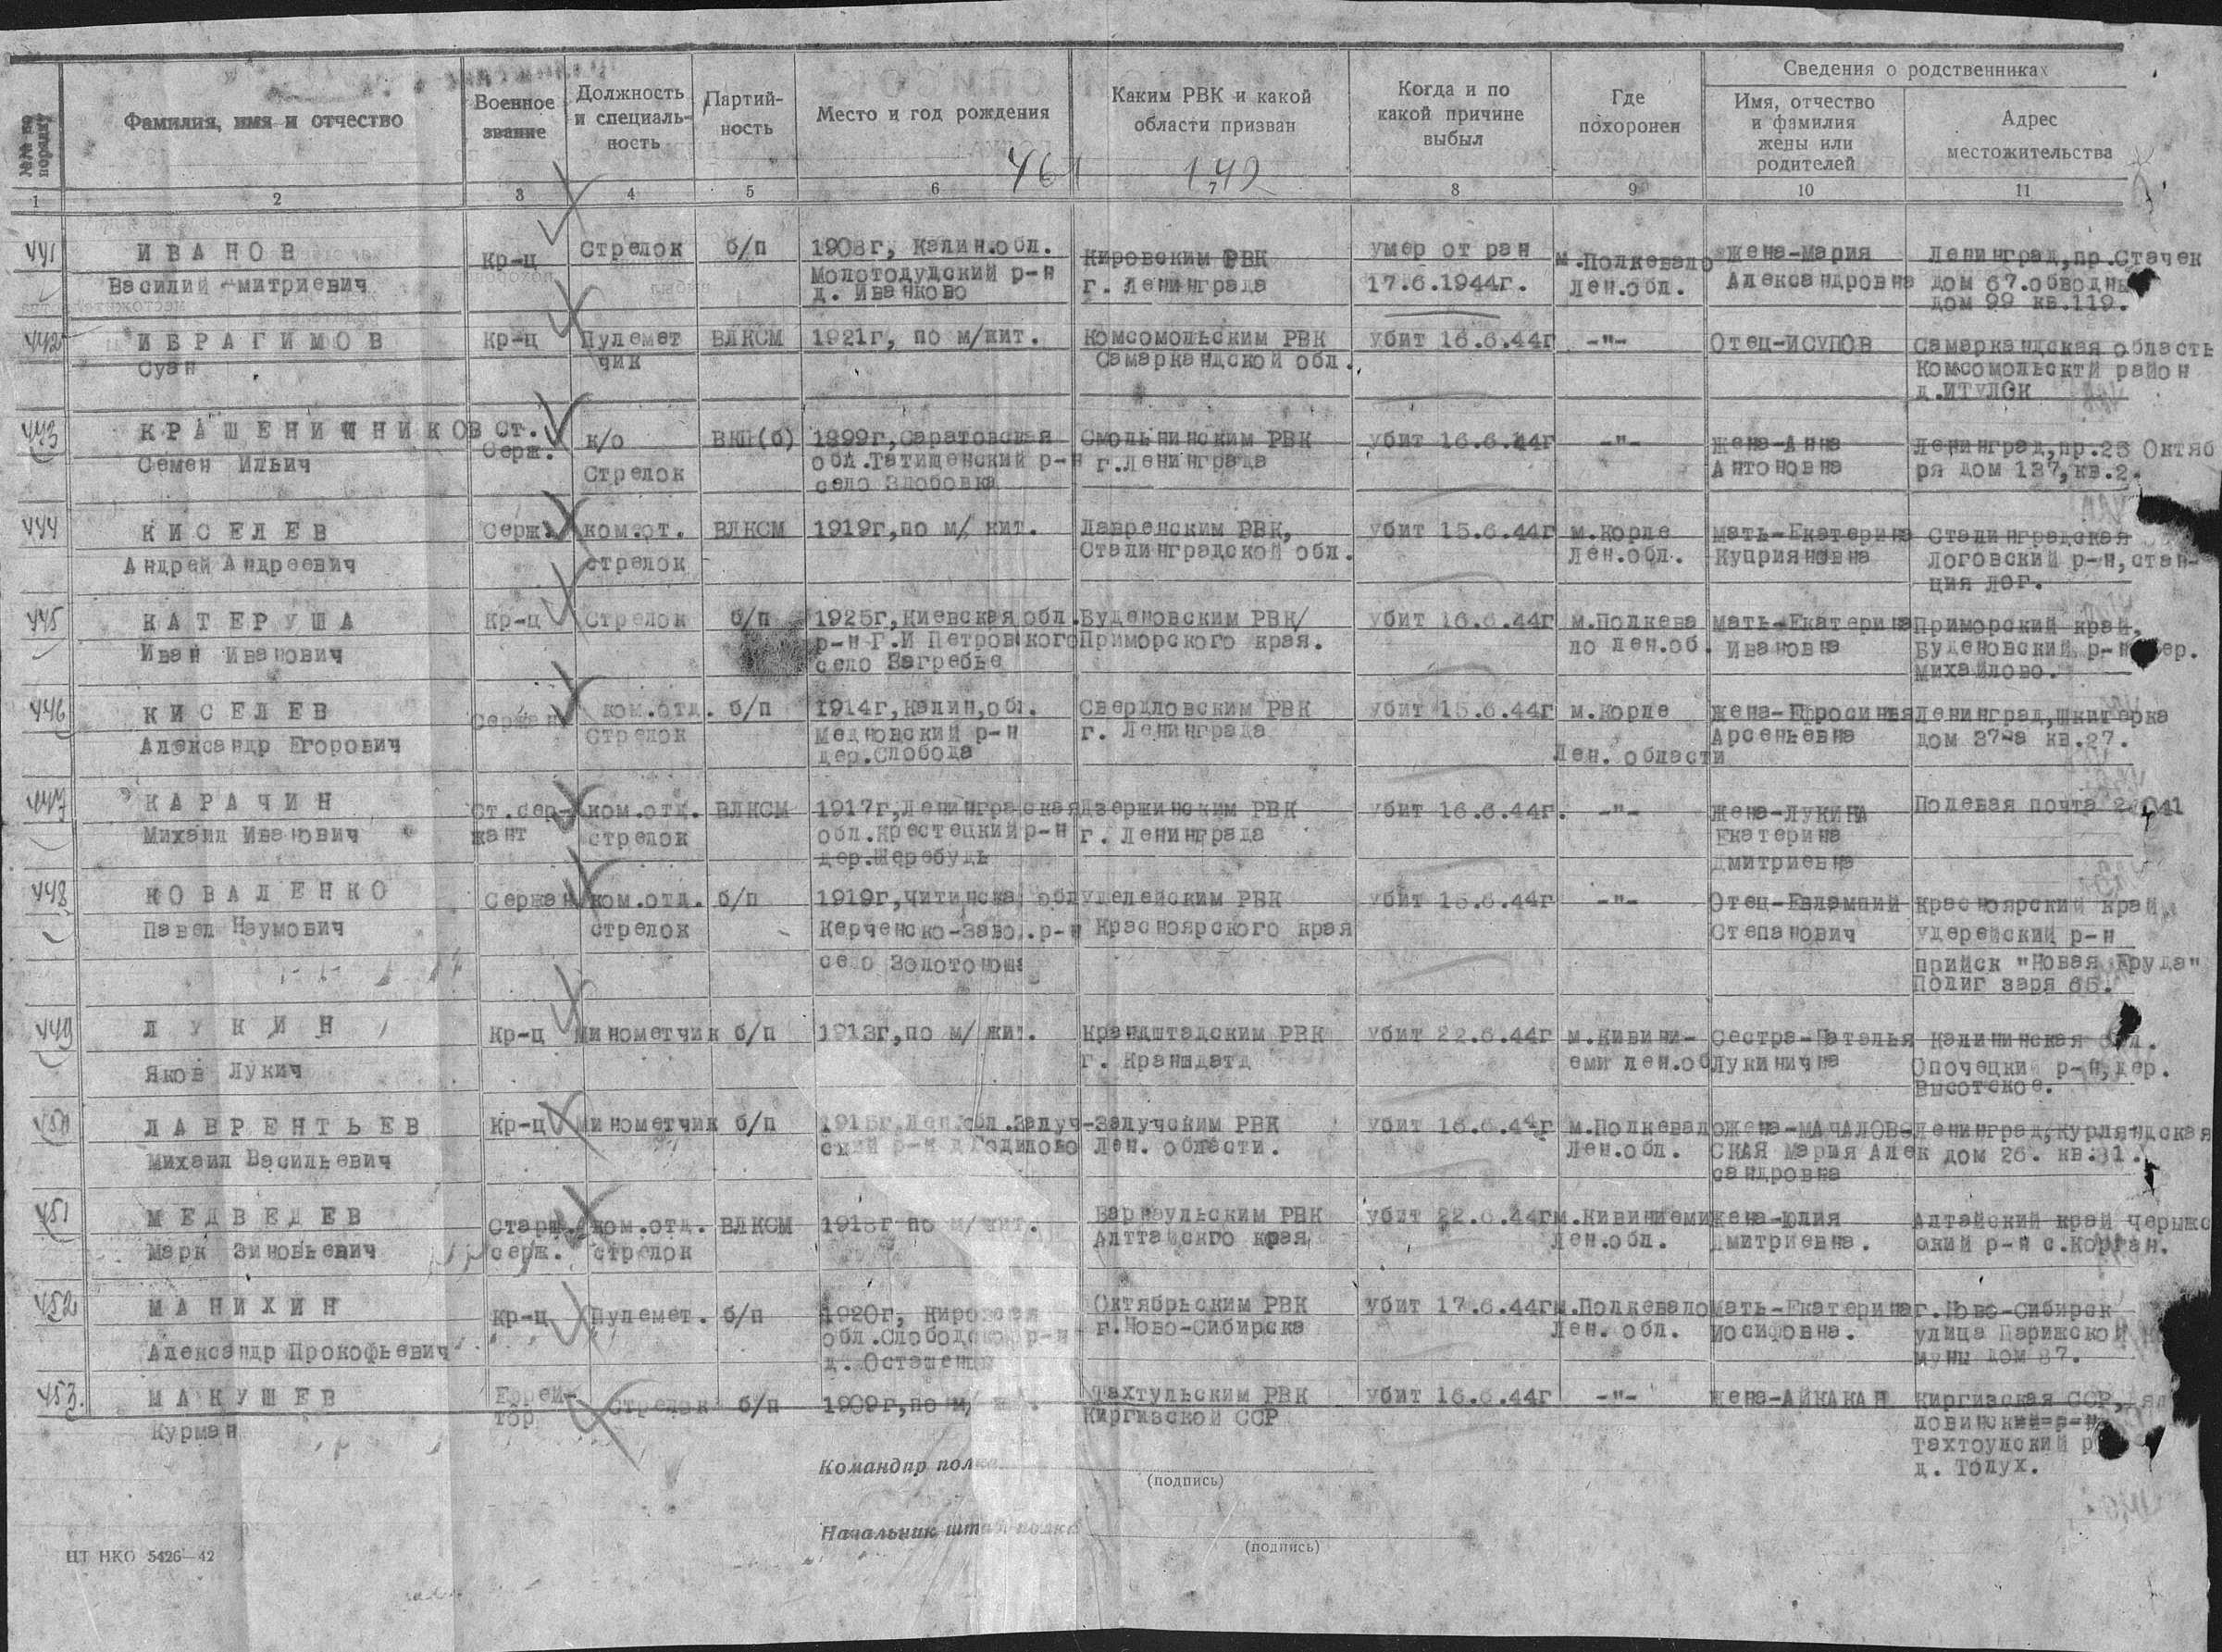 №№ по порядку
Фамилия, имя и отчество
Военное звание
Должность и специальность
Партий-ность
Место и год рождения
Каким РВК и какой области призван
Когда и по какой причине выбыл
Где похоронен
Сведения о родственниках
Имя, отчество и фамилия жены или родителей
Адрес местожительства
461
149
1 2 3 4 5 6 7 8 9 10 11
441 ИВАНОВ Кр-ц Стрелок б/п 1908г, Калин.обл. Кировским РВК умер от ран м.Полкевало Жена-Мария Ленинград,пр.Стачек
Василий митриевич Молотодудский р-н г. Ленинграда 17.6.1944г. Лен.обл. Александровна дом 67.обводны
д. Иванково дом 99 кв.119.
442 ИБРАГИМОВ Кр-ц Пулемет ВЛКСМ 1921г, по м/жит. Комсомольским РВК убит 16.6.44г -"- Отец-ИСУПОВ Самаркандская область
Суан чик Самаркандской обл. Комсомольскти район
д.ИТУЛСК
443 КРАШЕНИННИКОВ Ст. к/о ВКП(б) 1899г,Саратовская Смольнинским РВК убит 16.6.44г -"- Жена-Анна Ленинград,пр.25 Октяб
Семен Ильич Серж. Стрелок обл.Татищенский р-н г.Ленинграда Антоновна ря дом 137,кв.2.
село Злобовка
444 КИСЕЛЕВ Серж. ком.от. ВЛКСМ 1919г,по м/ жит. Лавреиским РВК, убит 15.6.44г м.Корпе мать-Екатерина Сталинградская
Андрей Андреевич стрелок Сталинградской обл. Лен.обл. Куприяновна Логовский р-н,стан-
ция лог.
445 КАТЕРУША Кр-ц Стрелок б/п 1925г,Киевская обл. Буденовским РВК/ убит 16.6.44г м.Полкева мать-Екатерина Приморский край,
Иван Иванович р-н Г.И Петровского Приморского края. ло лен.об. Ивановна Буденовский р-н ер.
село Загребье михайлово.
446 КИСЕЛЕВ Сержан ком.отд. б/п 1914г,Калин,обл. Свердловским РВК убит 15.6.44г м.Корпе Жена-Ефросинья Ленинград,шкиперка
Александр Егорович стрелок Медновский р-н г. Ленинграда Лен. области Арсеньевна дом 37-а кв.27.
дер.Слобода
447 КАРАЧИН Ст.сер- ком.отд. ВЛКСМ 1917г,Ленинграская Дзержинским РВК убит 16.6.44г. -"- Жена-ЛУКИНА Полевая почта
Михаил Иванович жант стрелок обл.Крестецкий р-н г. Ленинграда Екатерина
дер.Шеребудь Дмитриевна
448 КОВАЛЕНКО Сержан ком.отд. б/п 1919г,читинска обл Уделейским РВК убит 15.6.44г -"- Отец-Евлампий Красноярский край,
Павел Наумович стрелок Керченско-Заво.р-н Красноярского края Степанович удерейский р-н
село Золотоноша прийск "Новая Еруда"
Полиг заря 65.
449 ЛУКИН Кр-ц Минометчик б/п 1913г,по м/ жит. Крандштадским РВК убит 22.6.44г м.Кивини- Сестра-Наталья Калининская
Яков Лукич г. Кранштатд еми лен.об Лукинична Опочецкий р-н,дер.
Высотское.
450 ЛАВРЕНТЬЕВ Кр-ц Минометчик б/п 1915г.Лен.обл.Залуч- Залучским РВК убит 16.6.44г м.Полкевало жена-МАЧАЛОВ Ленинград,курляндская
Михаил Васильевич ский р-н д Годилово Лен. области. Лен.обл. СКАЯ Мария Алек дом 26. кв.31.
сандровна
451 МЕДВЕДЕВ Старш. ком.отд. ВЛКСМ 1918г по м/ жит. Барнаульским РВК убит 22.6.44г м.Кивиниеми жена-Юлия Алтайский край черыжс
Марк Зиновьевич серж. стрелок Алттайскго края Лен.обл. Дмитриевна. ский р-н с.Корган.
452 МАНИХИН Кр-ц Пулемет. б/п 1920г, Кировская Октябрьским РВК убит 17.6.44г м.Полкевало мать-Екатерина г.Ново-Сибирск
Александр Прокофьевич обл.Слободско р-н г.Ново-Сибирска Лен. обл. Иосифовна. улица Парижской
д. Осташенцы муны дом 37.
453. МАКУШЕВ Ефрей- Стрелок б/п 1909г,по м/ Тахтульским РВК убит 16.6.44г -"- Жена-АЙКАКАН Киргизская ССР,
Курман тор Киргизской ССР ловинский р-н
Тахтоулский р
д. Толух.
Командир полка
(подпись)
Начальник штаба полка
(подпись)
ЦТ НКО 5426—42